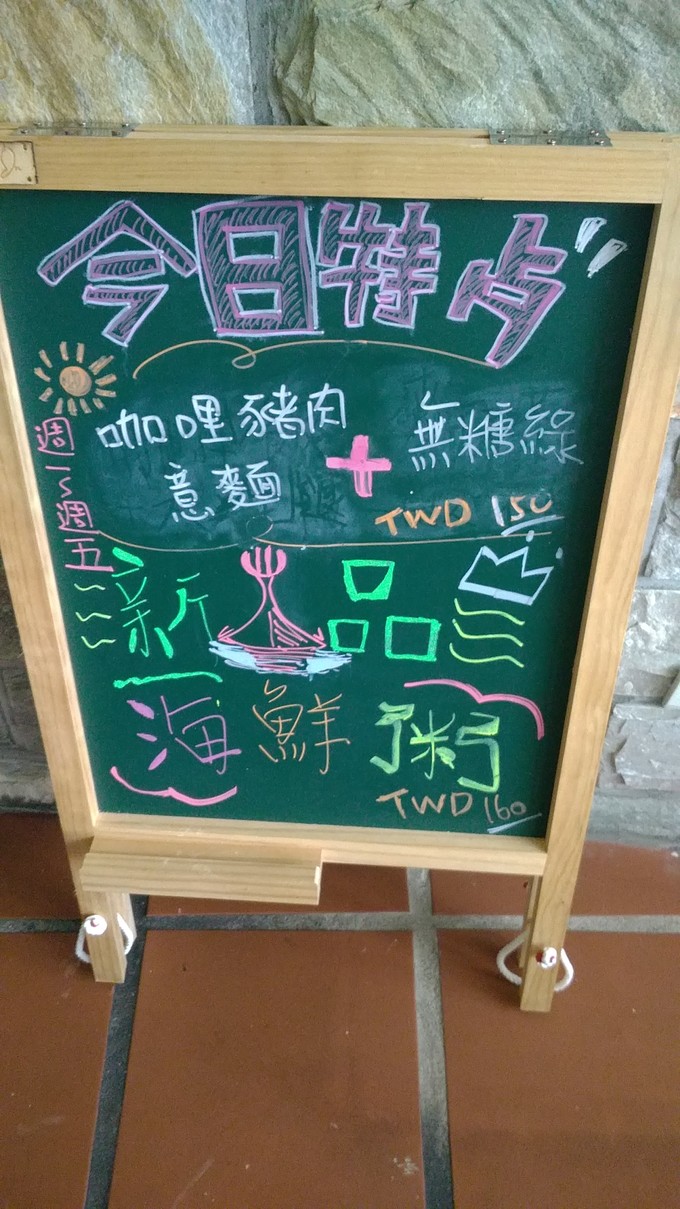 今日特点
週一~週五
咖哩豬肉意麵 + 無糖綠
TWD 150
新品
海鮮粥
TWD 160